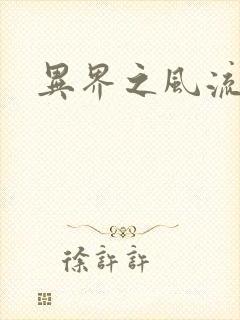 異界之風流
徐許許